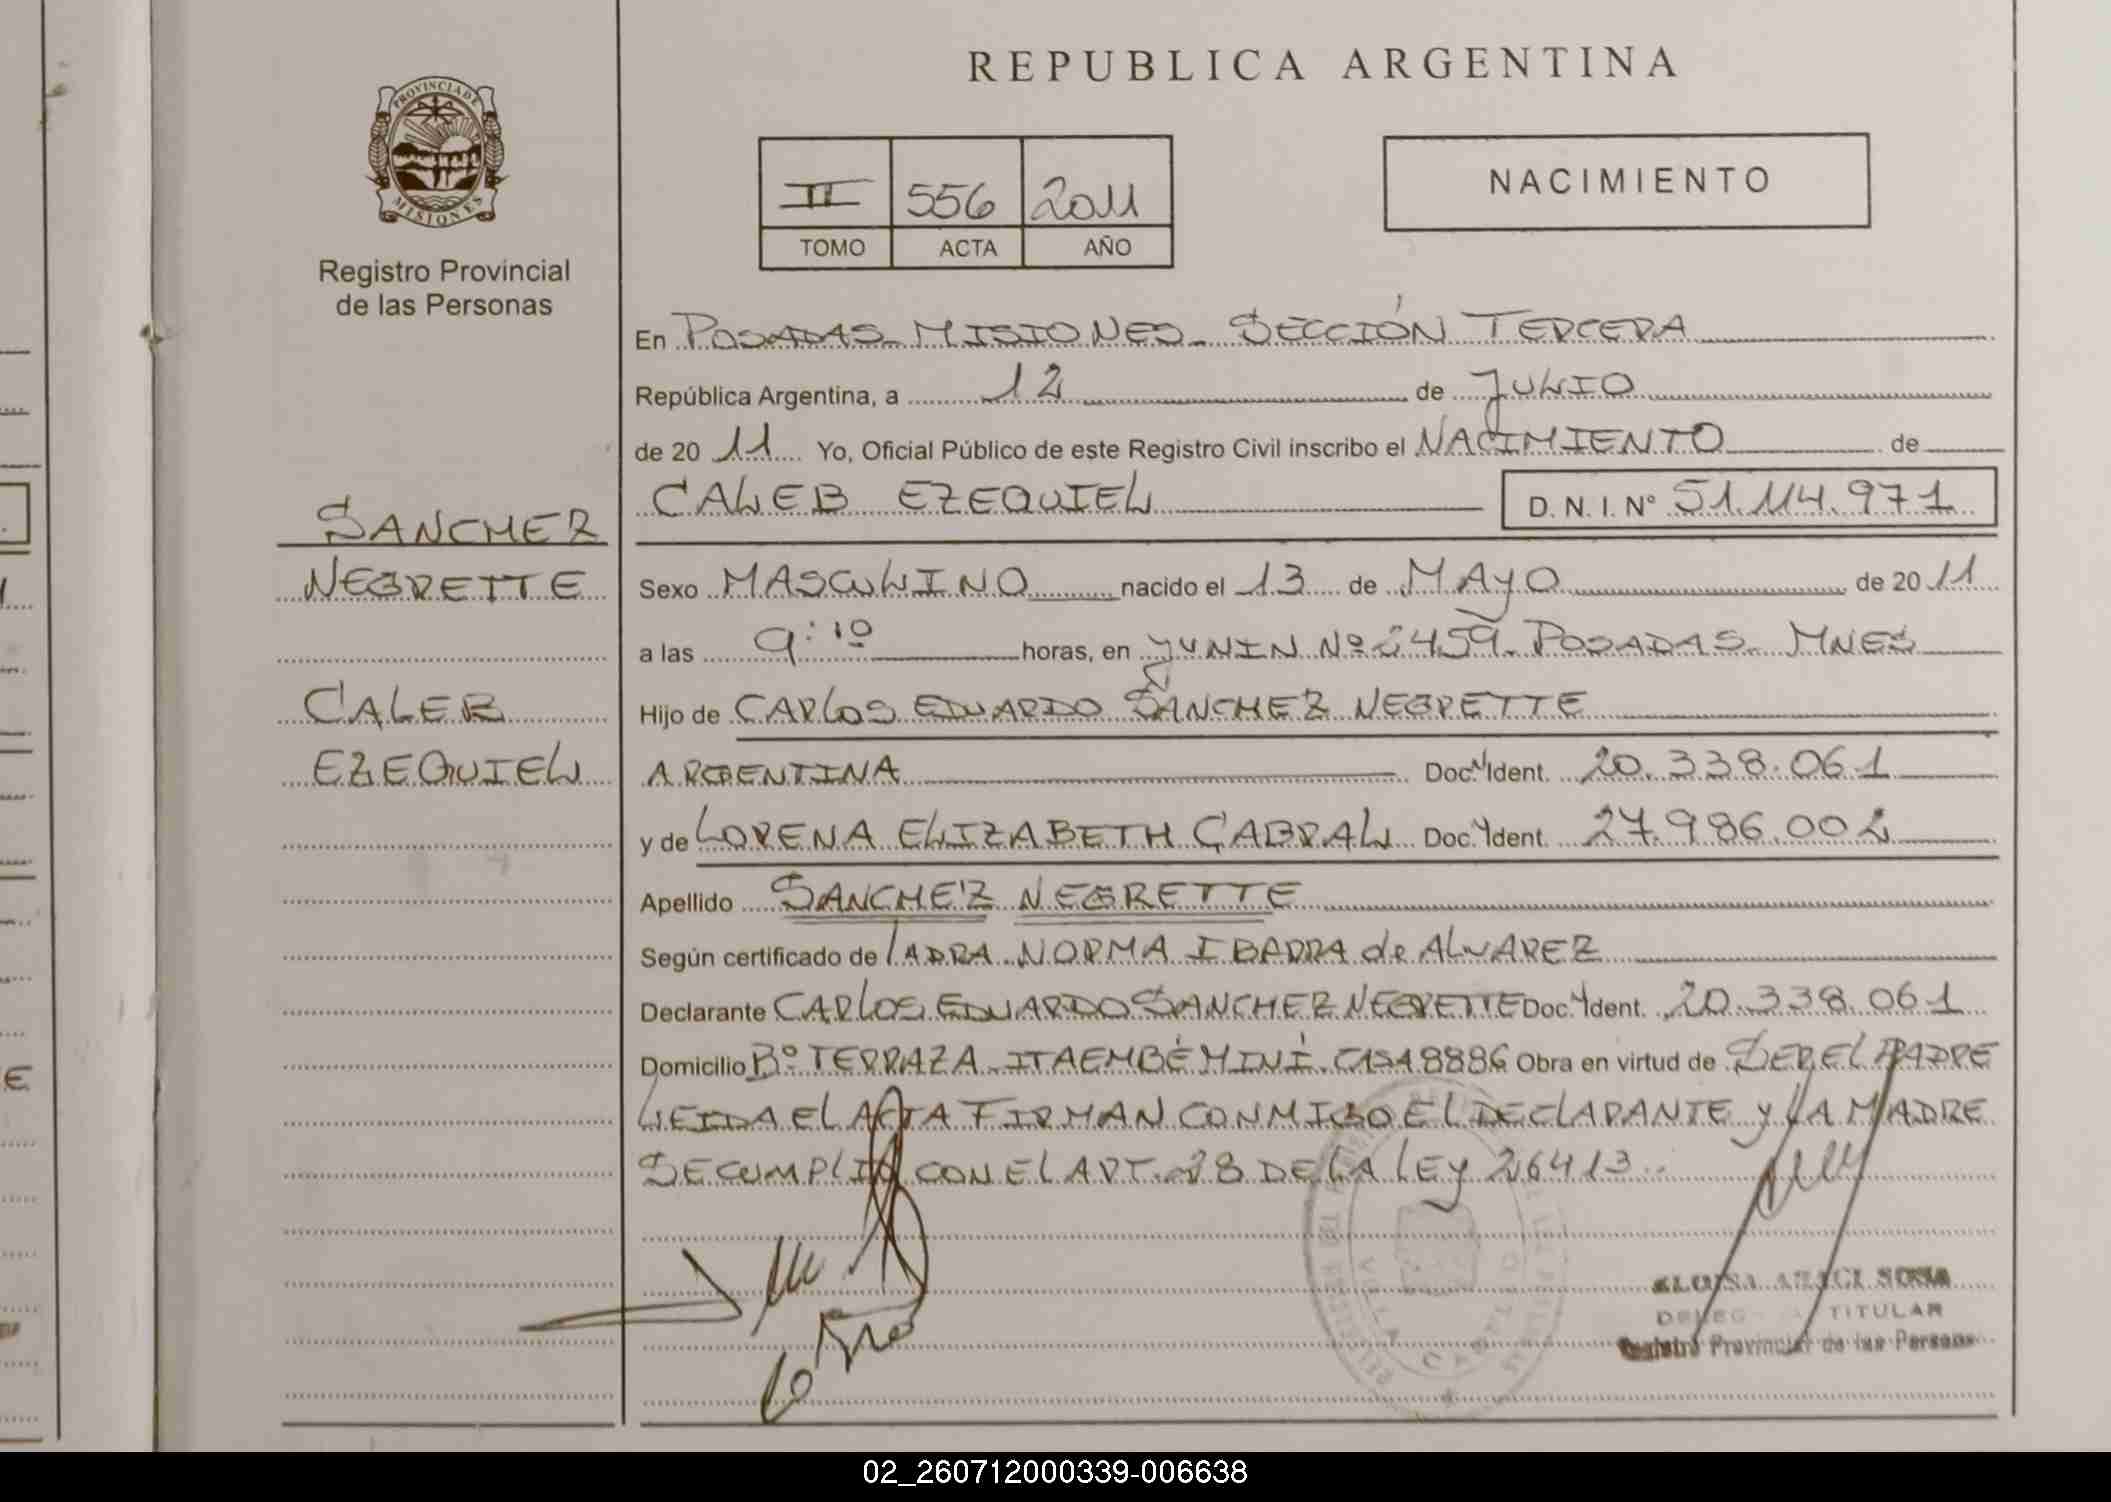 REPUBLICA ARGENTINA
PROVINCIA DE
MISIONES
Registro Provincial
de las Personas
II 556 2011
TOMO ACTA AÑO
NACIMIENTO
En POSADAS MISIONES - SECCIÓN TERCERA
República Argentina, a 12 de JULIO
de 20 11 Yo, Oficial Público de este Registro Civil inscribo el NACIMIENTO de
CALEB EZEQUIEL D. N. I. Nº 51.114.971
SANCHEZ
NEGRETTE
CALEB
EZEQUIEL
Sexo MASCULINO nacido el 13 de MAYO de 20 11
a las 9:10 horas, en JUNIN Nº 2459 - POSADAS - MNES
Hijo de CARLOS EDUARDO SANCHEZ NEGRETTE
ARGENTINA Doc. Ident. 20.338.061
y de LORENA ELIZABETH CABRAL Doc. Ident. 27.986.002
Apellido SANCHEZ NEGRETTE
Según certificado de NORMA IBARRA de ALVAREZ
Declarante CARLOS EDUARDO SANCHEZ NEGRETTE Doc. Ident. 20.338.061
Domicilio Bº TERRAZA - ITAEMBÉ MINÍ. CASA 8886 Obra en virtud de SER EL PADRE
LEIDA EL ACTA FIRMAN CONMIGO EL DECLARANTE Y LA MADRE
SE CUMPLIO CON EL ART. 28 DE LA LEY 26413
SOSA
TITULAR
Registro Provincial de las Personas
02_260712000339-006638